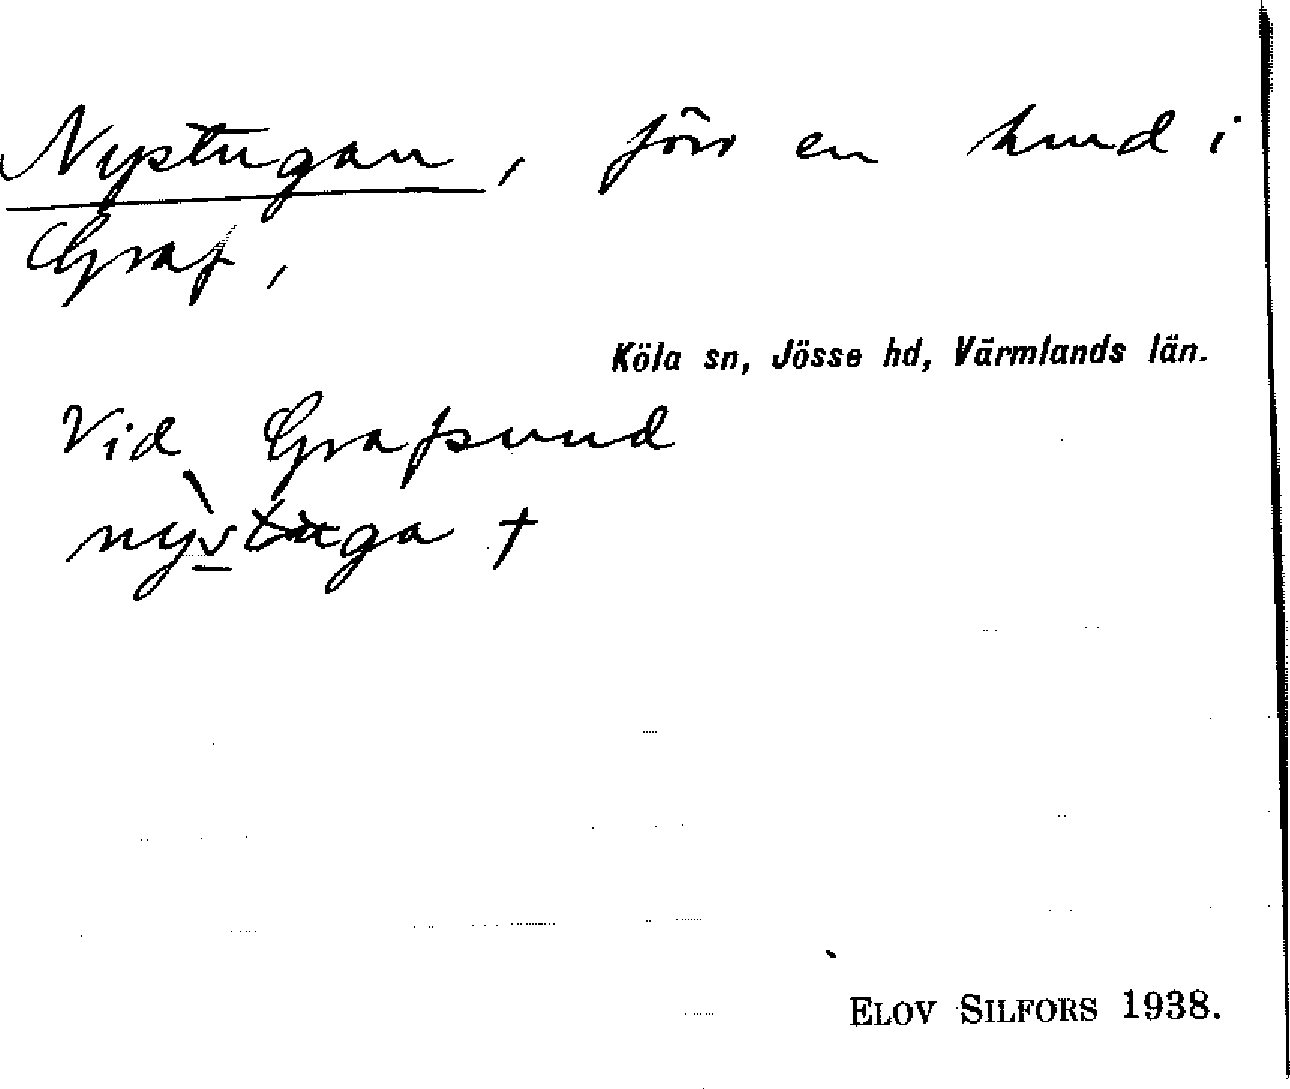 Nystugan, förr en lund i
Graf,
Köla sn, Jösse hd, Värmlands län.
Vid Grafsund
nystuga †
ELOV SILFORS 1938.